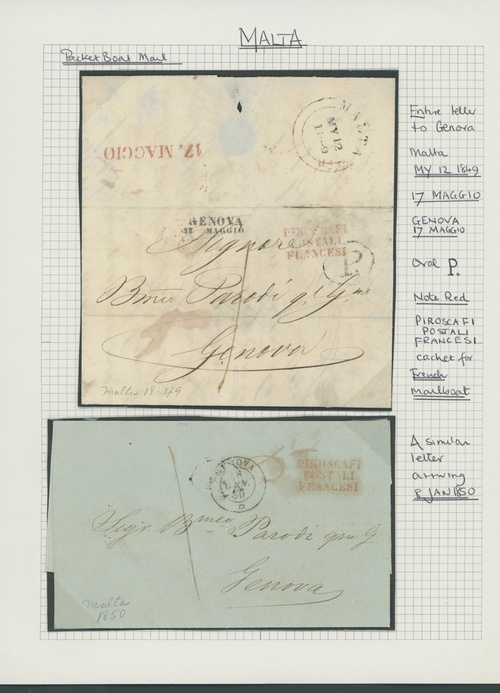 MALTA
Packet Boat Mail
17. MAGGIO
MALTA
MY 12
1849
GENOVA
17 MAGGIO
PIROSCAFI
POSTALI
FRANCESI
P.
Signore
Bmeo Parodi q.m G.me
Genova
Malta 1849
Entire letter
to Genova
Malta
MY 12 1849
17 MAGGIO
GENOVA
17 MAGGIO
Oval P.
Note Red
PIROSCAFI
POSTALI
FRANCESI
cachet for
French
mailboat
GENOVA
8
PIROSCAFI
POSTALI
FRANCESI
Sigr Bmeo Parodi qm G
Genova
Malta
1850
A similar
letter
arriving
8 JAN 1850